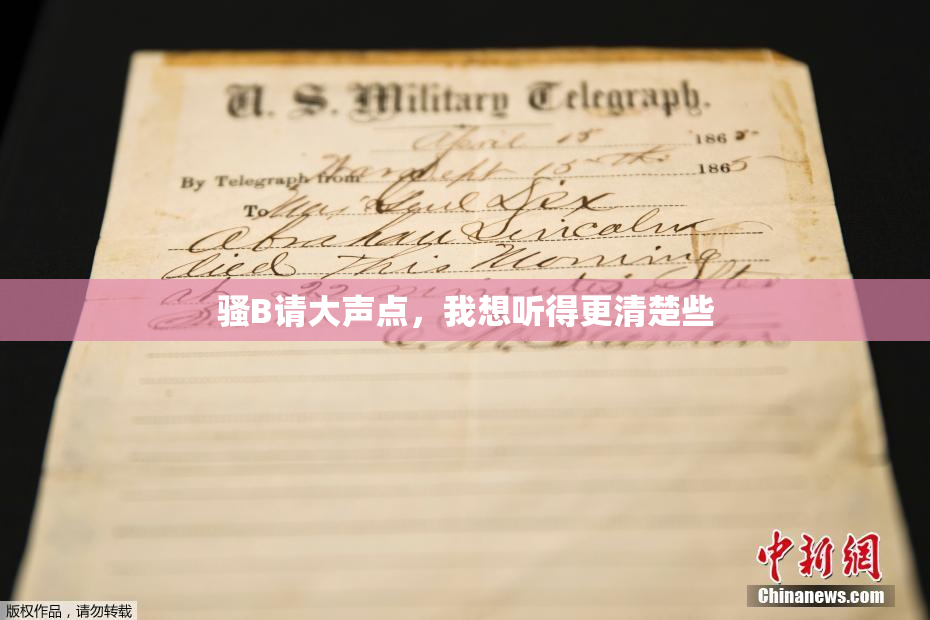 U. S. Military Telegraph.
April 15 1865
By Telegraph from War Dept 15th 1865
To Maj Genl Dix
Abraham Lincoln
died This Morning
at 22 minutes after
骚B请大声点，我想听得更清楚些
中新网
Chinanews.com
版权作品，请勿转载